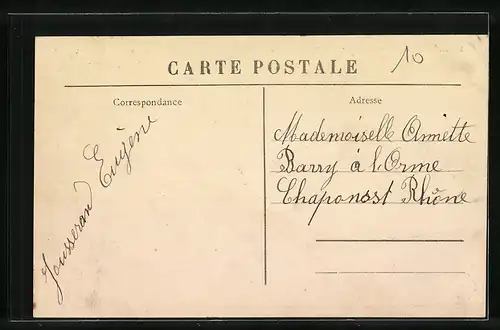 10
CARTE POSTALE
Correspondance
Jousserand Eugène
Adresse
Mademoiselle Annette
Barry à l'Orme
Chaponsst Rhône